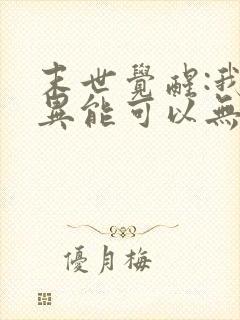 末世覺醒:我
異能可以無
優月梅